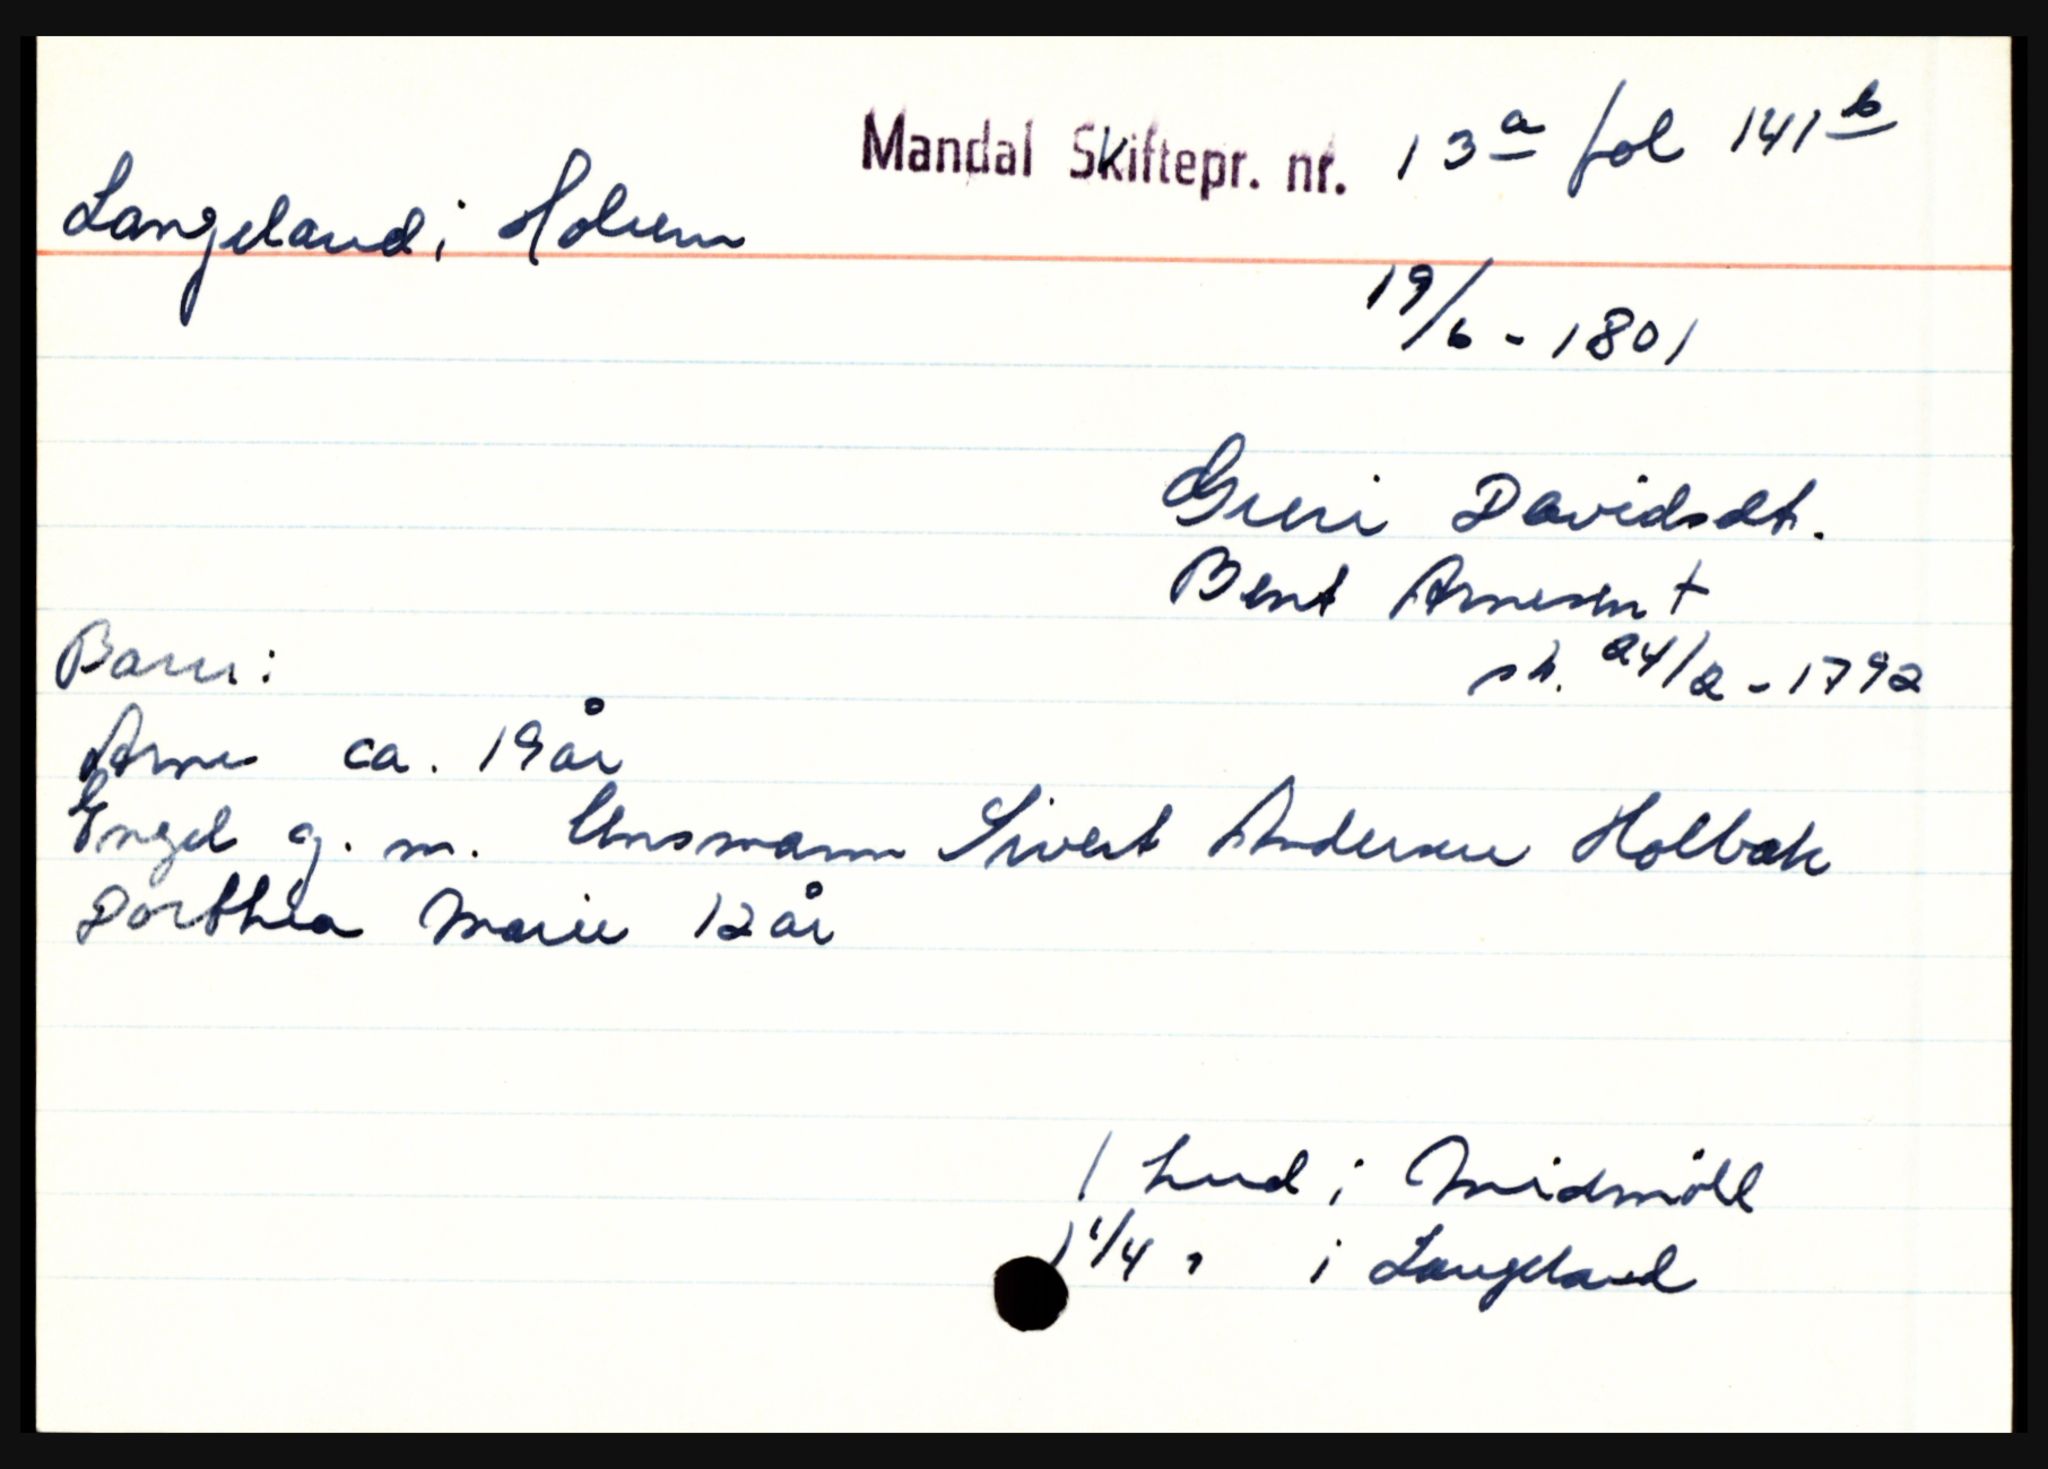 Mandal Skiftepr. nr. 13a fol 141b
Langeland i Holum
19/6 - 1801
Guri Davidsdt.
Bent Arnesen +
sk. 24/2 - 1792
Barn:
Arne ca. 19 år
Engel g. m. Unsmann Sivert Andersen Holbæk
Dorthea Marie 12 år
1 hud i Midmöll
1 1/4 " i Langeland